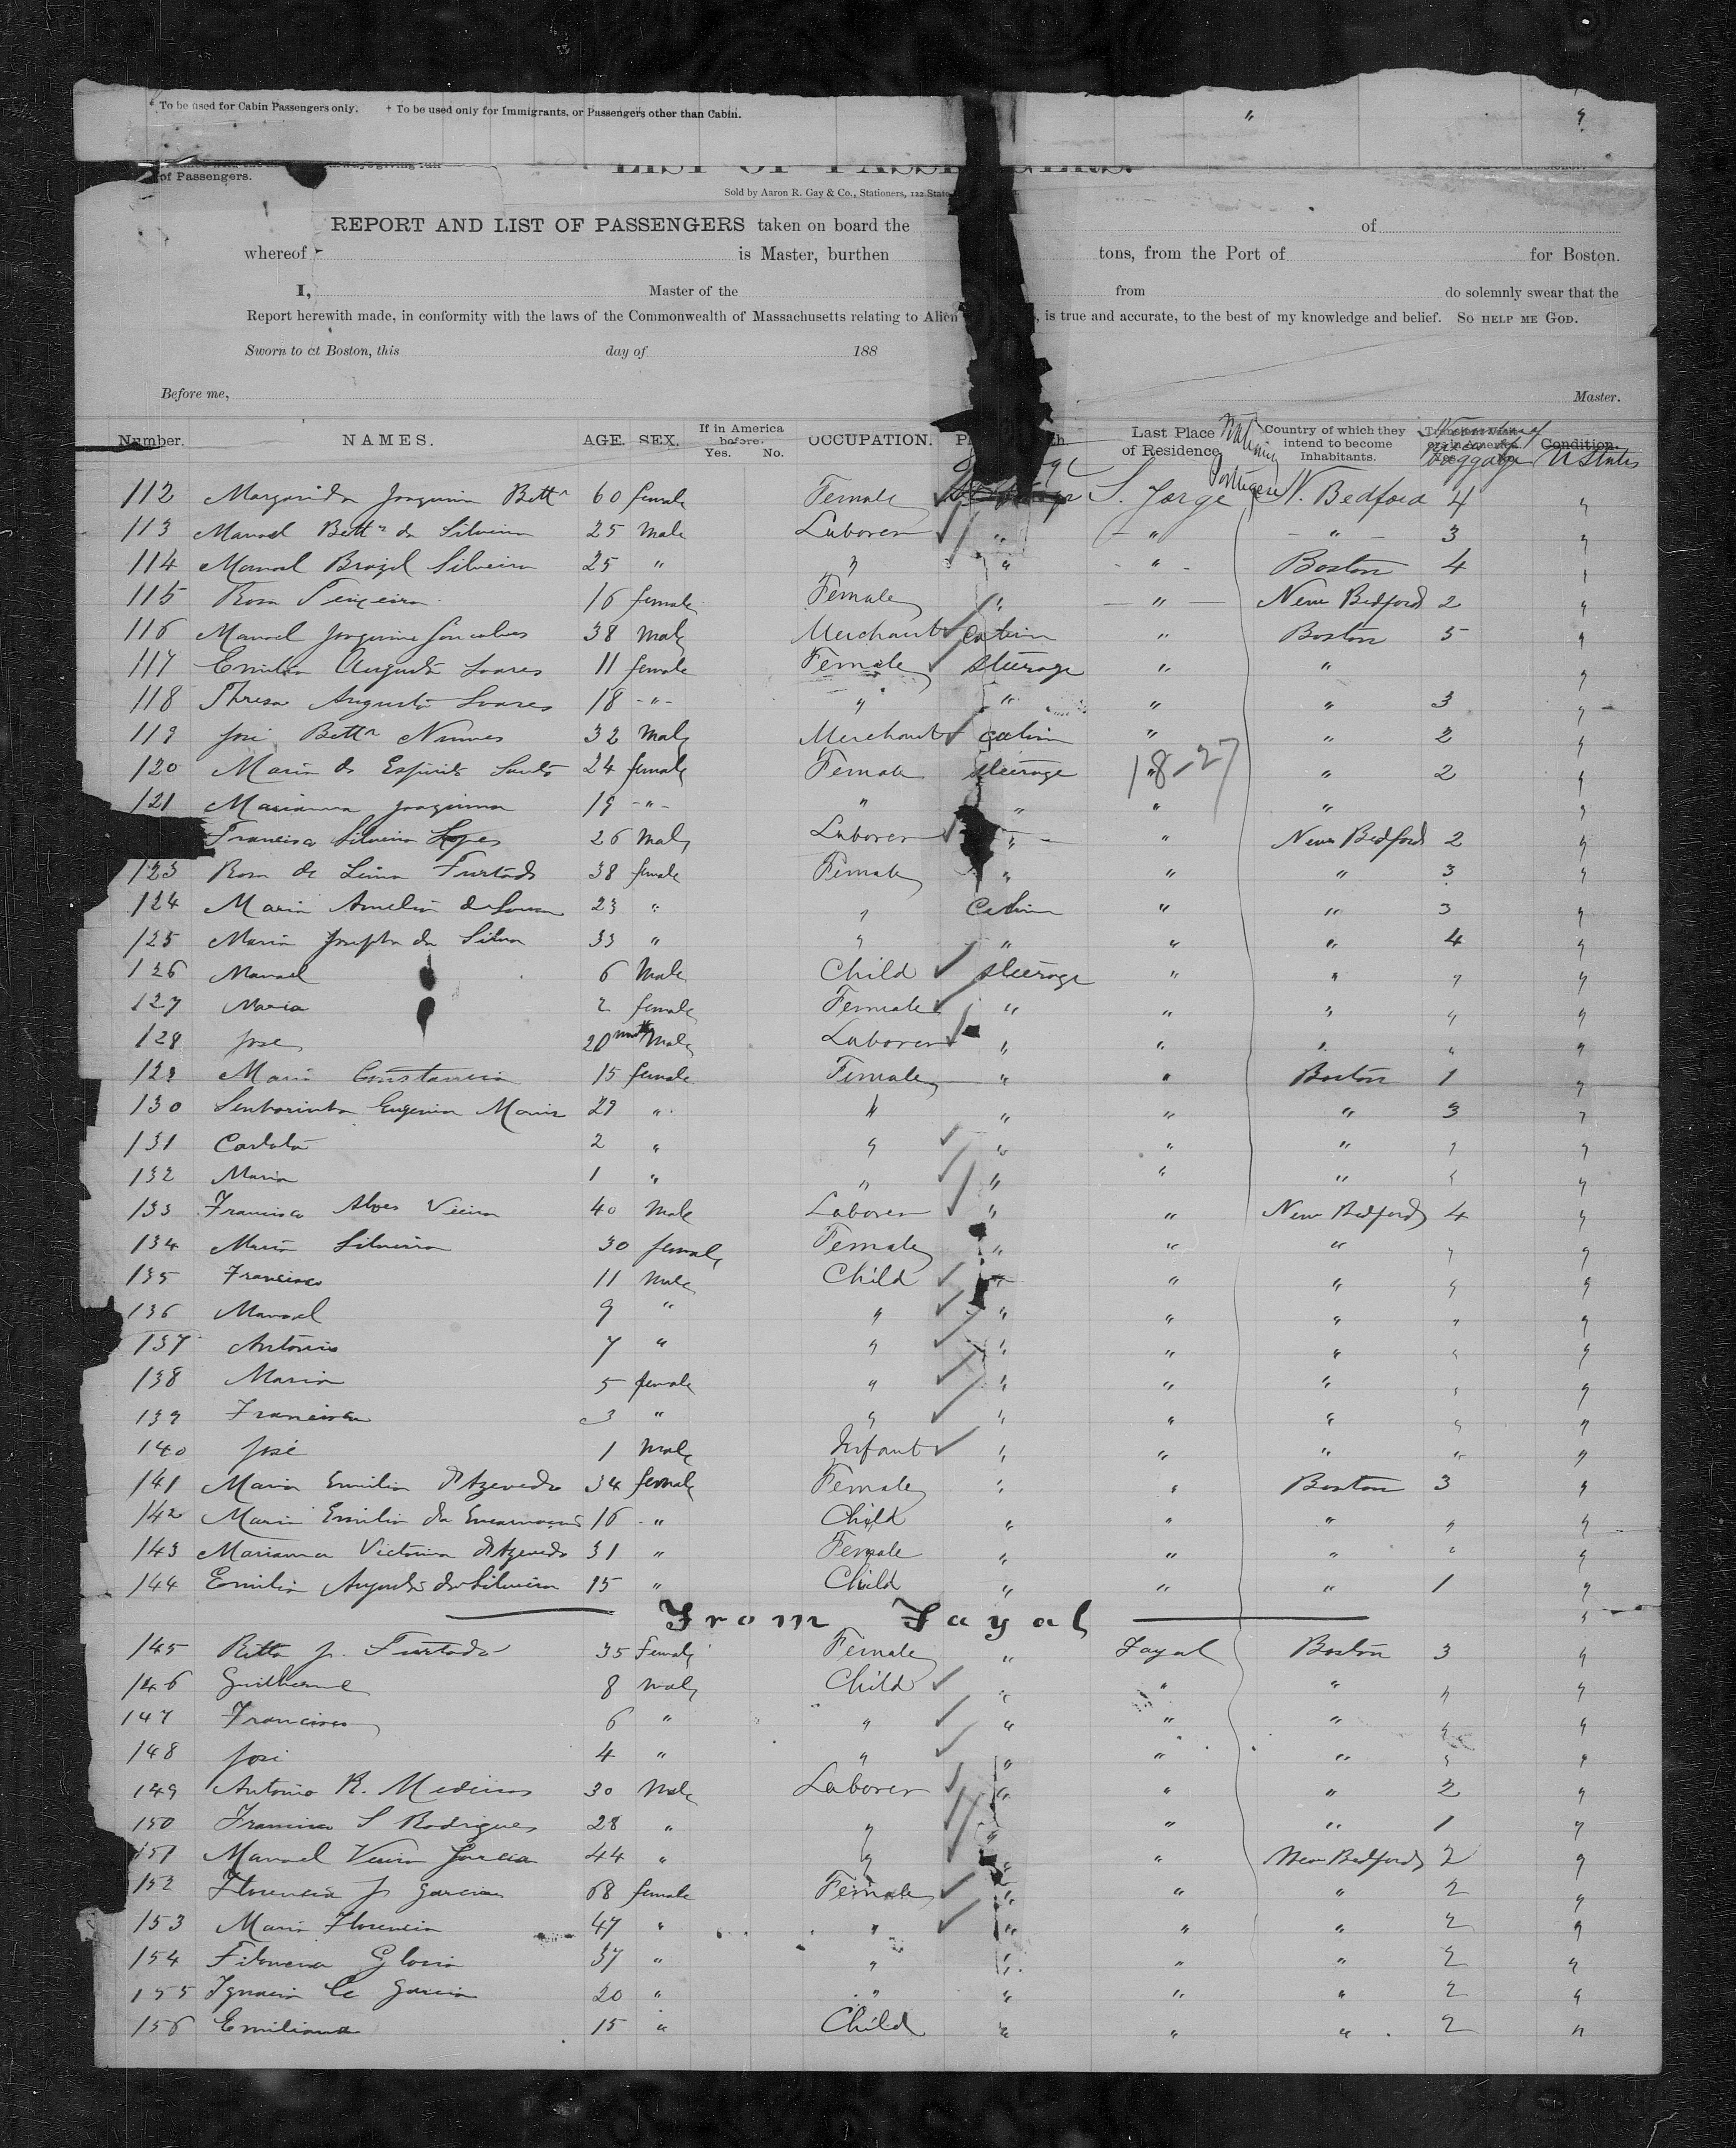 * To be used for Cabin Passengers only. † To be used only for Immigrants, or Passengers other than Cabin. " "
of Passengers.
LIST OF PASSENGERS.
Sold by Aaron R. Gay & Co., Stationers, 122 State
REPORT AND LIST OF PASSENGERS taken on board the of
whereof is Master, burthen tons, from the Port of for Boston.
I, Master of the from do solemnly swear that the
Report herewith made, in conformity with the laws of the Commonwealth of Massachusetts relating to Alien , is true and accurate, to the best of my knowledge and belief. SO HELP ME GOD.
Sworn to at Boston, this day of 188
Before me, Master.
Number. NAMES. AGE. SEX. If in America before. Yes. No. OCCUPATION. Last Place of Residence Country of which they intend to become Inhabitants. baggage Condition. U States
112 Margarida Joaquina Bettn 60 female Female S. Jorge Portuguese N. Bedford 4 "
113 Manoel Bettn da Silveira 25 Male Laborer " " " 3 "
114 Manoel Brazil Silveira 25 " " " " Boston 4 "
115 Rosa Teixeira 16 female Female " " New Bedford 2 "
116 Manoel Joaquim Goncalves 38 Male Merchant cabin " Boston 5 "
117 Emilia Augusta Soares 11 female Female steerage " " "
118 Theresa Augusta Soares 18 " " " " " 3 "
119 José Bettn Nunes 32 Male Merchant cabin " " 2 "
120 Maria do Espirito Santo 24 female Female steerage " 18-27 " 2 "
121 Marianna Joaquina 19 " " " " " "
Francisco Silveira Lopes 26 Male Laborer " " New Bedford 2 "
123 Rosa de Lima Furtado 38 female Female " " " 3 "
124 Maria Amelia de Sousa 23 " " Cabin " " 3 "
125 Maria Josepha da Silva 33 " " " " " 4 "
126 Manoel 6 Male Child steerage " " " "
127 Maria 2 female Female " " " " "
128 Jose 20 mths Male Laborer " " " " "
129 Maria Constancia 15 female Female " " Boston 1 "
130 Senhorinha Eugenia Maria 29 " " " " " 3 "
131 Carlota 2 " " " " " " "
132 Maria 1 " " " " " " "
133 Francisco Alves Vieira 40 Male Laborer " " New Bedford 4 "
134 Maria Silveira 30 female Female " " " " "
135 Francisco 11 Male Child " " " " "
136 Manoel 9 " " " " " " "
137 Antonio 7 " " " " " " "
138 Maria 5 female " " " " " "
139 Francisca 3 " " " " " " "
140 José 1 Male Infant " " " " "
141 Maria Emilia d'Azevedo 34 female Female " " Boston 3 "
142 Maria Emilia da Encarnação 16 " Child " " " " "
143 Marianna Victorina d'Azevedo 31 " Female " " " " "
144 Emilia Augusta da Silveira 15 " Child " " " 1 "
From Fayal "
145 Ritta J. Furtado 35 Female Female " Fayal Boston 3 "
146 Guilherme 8 Male Child " " " " "
147 Francisco 6 " " " " " " "
148 José 4 " " " " " " "
149 Antonio R. Medeiros 30 Male Laborer " " " 2 "
150 Francisco S Rodrigues 28 " " " " " 1 "
151 Manoel Vieira Garcia 44 " " " " New Bedford 2 "
152 Florencia J. Garcia 68 female Female " " " 2 "
153 Maria Florencia 47 " " " " " 2 "
154 Filomena Gloria 37 " " " " " 2 "
155 Ignacia C Garcia 20 " " " " " 2 "
156 Emiliana 15 " Child " " " 2 "